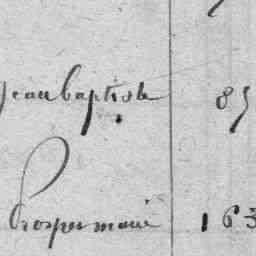 Jean baptiste 85
Prosper marie 163